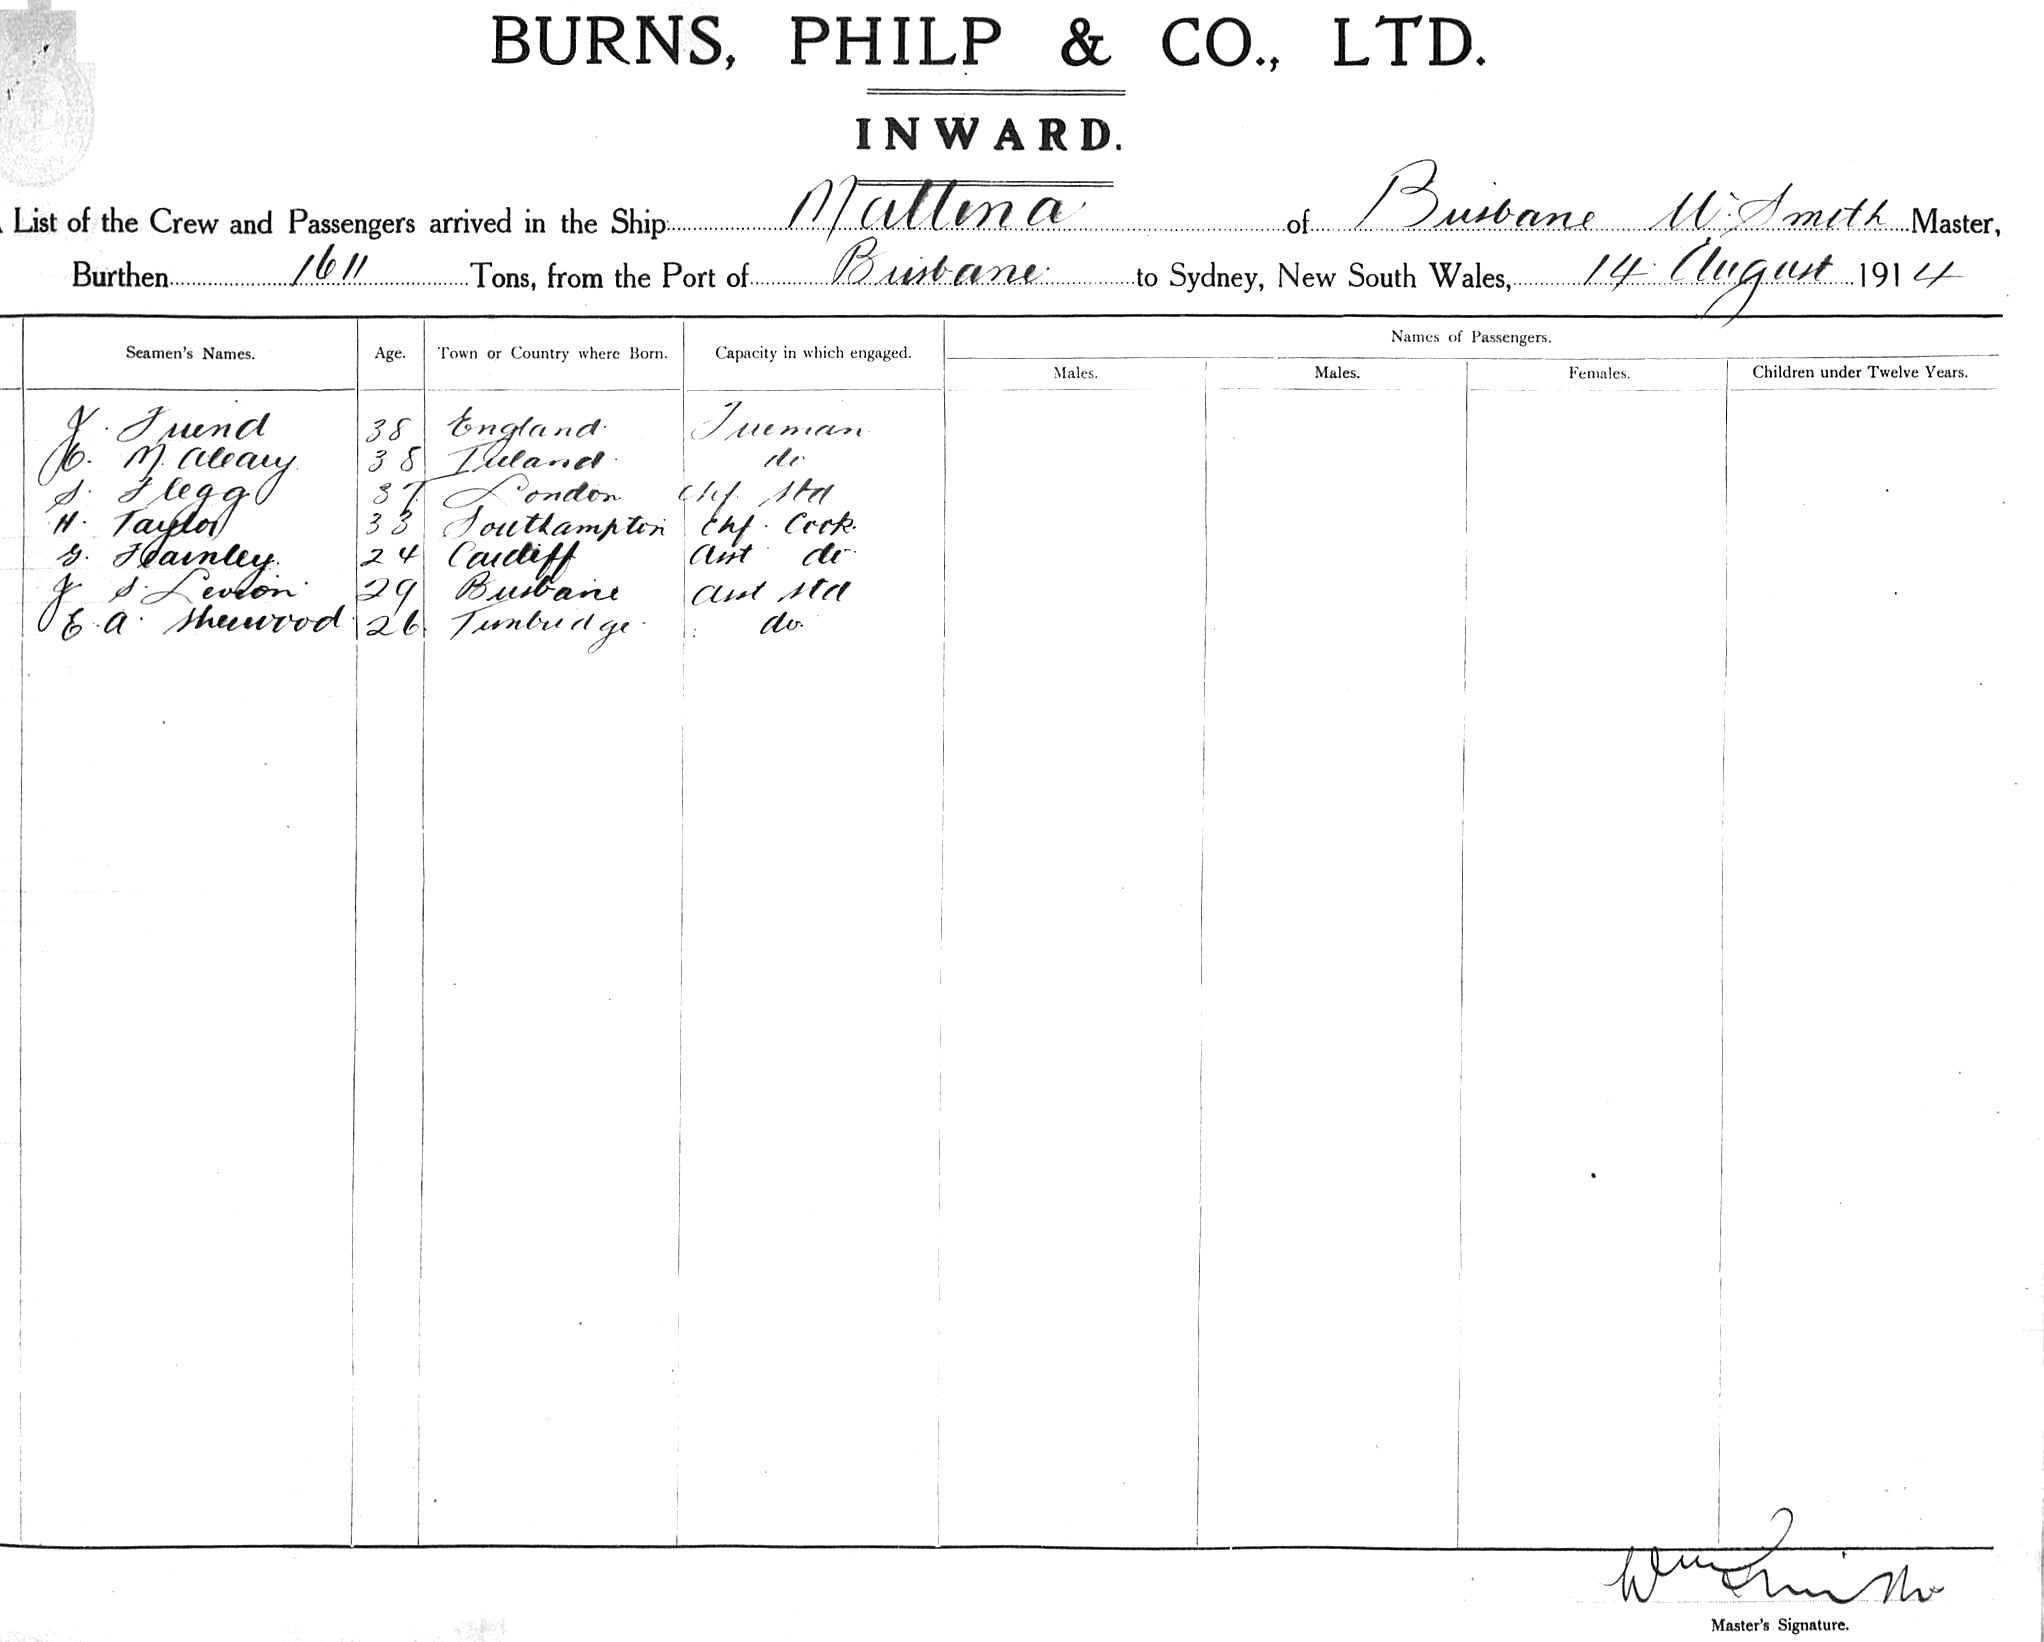 BURNS, PHILP & CO., LTD.
INWARD.
List of the Crew and Passengers arrived in the Ship Mattina of Brisbane W. Smith Master,
Burthen 1611 Tons, from the Port of Brisbane to Sydney, New South Wales, 14 August 1914
Seamen's Names. Age. Town or Country where Born. Capacity in which engaged. Names of Passengers.
Males. Males. Females. Children under Twelve Years.
J. Friend 38 England Fireman
38 Ireland do
S. Flegg 37 London Chf. Std
H. Taylor 33 Southampton Chf. Cook
G. Fearnley 24 Cardiff Asst do
J S. 29 Brisbane Asst Std
E. A. Sherwood 26 Tunbridge do
Wm Smith
Master's Signature.